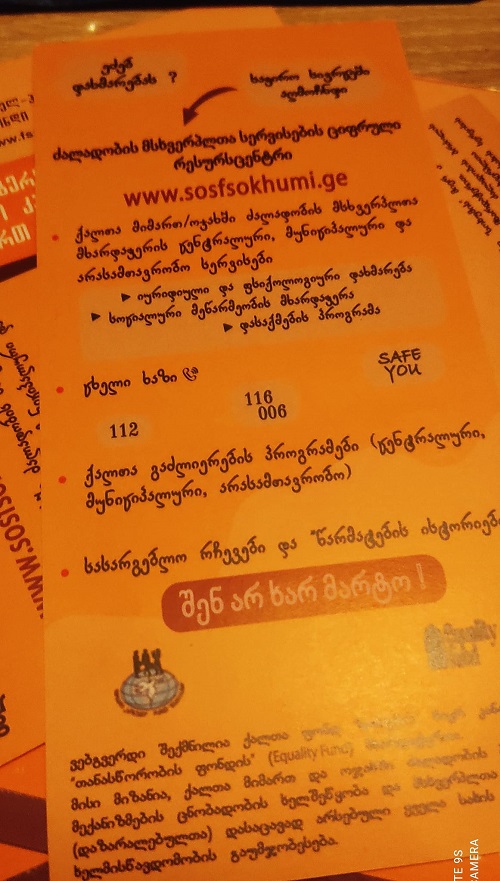 ეძებ
დახმარებას ?
საჭირო სივრცეში
აღმოჩნდი
ძალადობის მსხვერპლთა სერვისების ციფრული
რესურსცენტრი
www.sosfsokhumi.ge
• ქალთა მიმართ/ოჯახში ძალადობის მსხვერპლთა
მხარდაჭერის ცენტრალური, მუნიციპალური და
არასამთავრობო სერვისები
► იურიდიული და ფსიქოლოგიური დახმარება
► სოციალური მენარმეობის მხარდაჭერა
► დასაქმების პროგრამა
• ცხელი ხაზი
SAFE
YOU
112
116
006
• ქალთა გაძლიერების პროგრამები (ცენტრალური,
მუნიციპალური, არასამთავრობო)
• სასარგებლო რჩევები და "წარმატების ისტორიები
შენ არ ხარ მარტო !
Equality
Fund
ვებგვერდი შექმნილია ქალთა ფონდ
"თანასწორობის ფონდის" (Equality Fund)
მისი მიზანია, ქალთა მიმართ და ოჯახში ძალადობის
მექანიზმების ცნობადობის ხელშეწყობა და მსხვერპლთა
(დაზარალებულთა) დასაცავად არსებული ყველა სახის
ხელმისაწვდომობის გაუმჯობესება.
WWW.SOSFSO
TE 9S
CAMERA